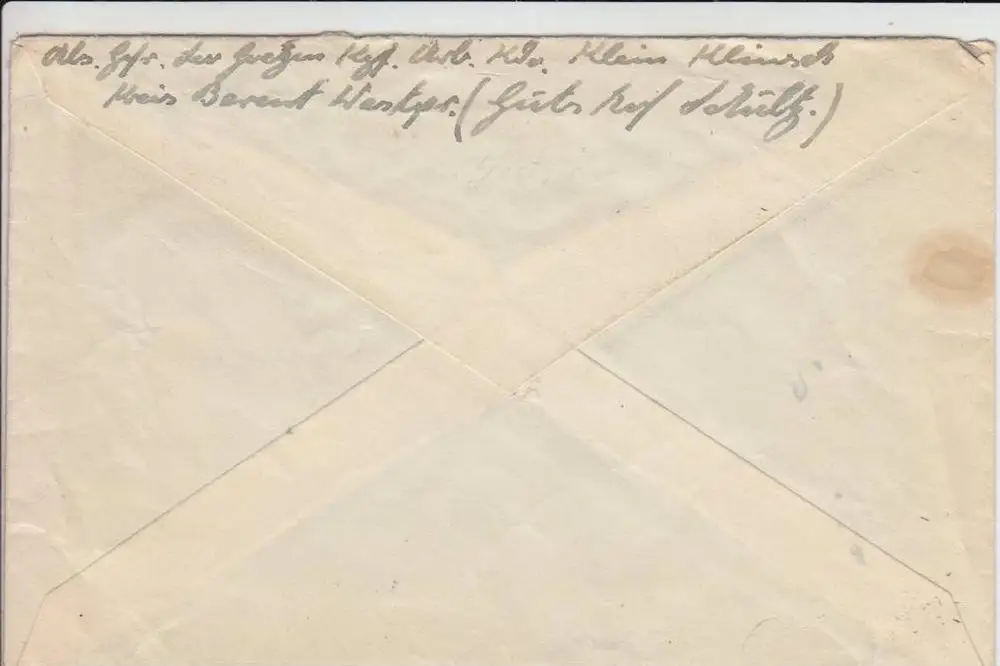 Abs. Gfr. Kgf. Arb. Kdo. Klein Klinsch
Kreis Berent Westpr. (Gutshof Schultz.)